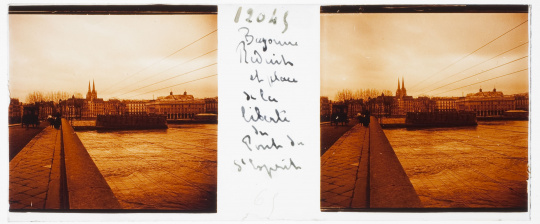 12045
Bayonne
Réduit
et place
de la
liberté
du
Pont du
St Esprit